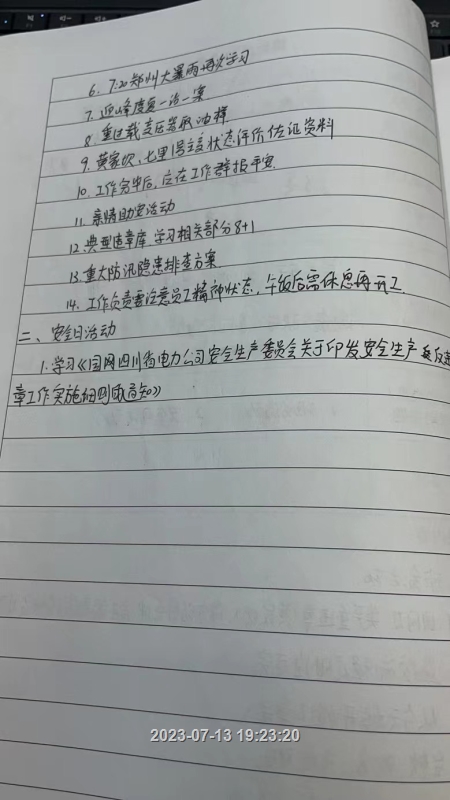 6. 7.20郑州大暴雨再次学习
7. 迎峰度夏一治一案
8. 重过载变压器取油样
9. 黄家坎、七里1号主变状态评价佐证资料
10. 工作完毕后，应在工作群报平安.
11. 亲情助安活动
12. 典型违章库 学习相关部分8+1
13. 重大防汛隐患排查方案
14. 工作负责要注意员工精神状态，午饭后需休息再开工
二、安全日活动
1. 学习《国网四川省电力公司安全生产委员会关于印发安全生产反违
章工作实施细则的通知》
2023-07-13 19:23:20